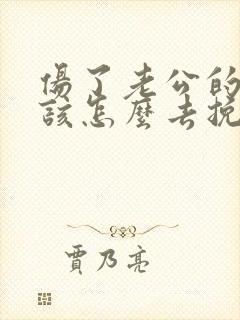 傷了老公的
該怎麼去挽
賈乃亮